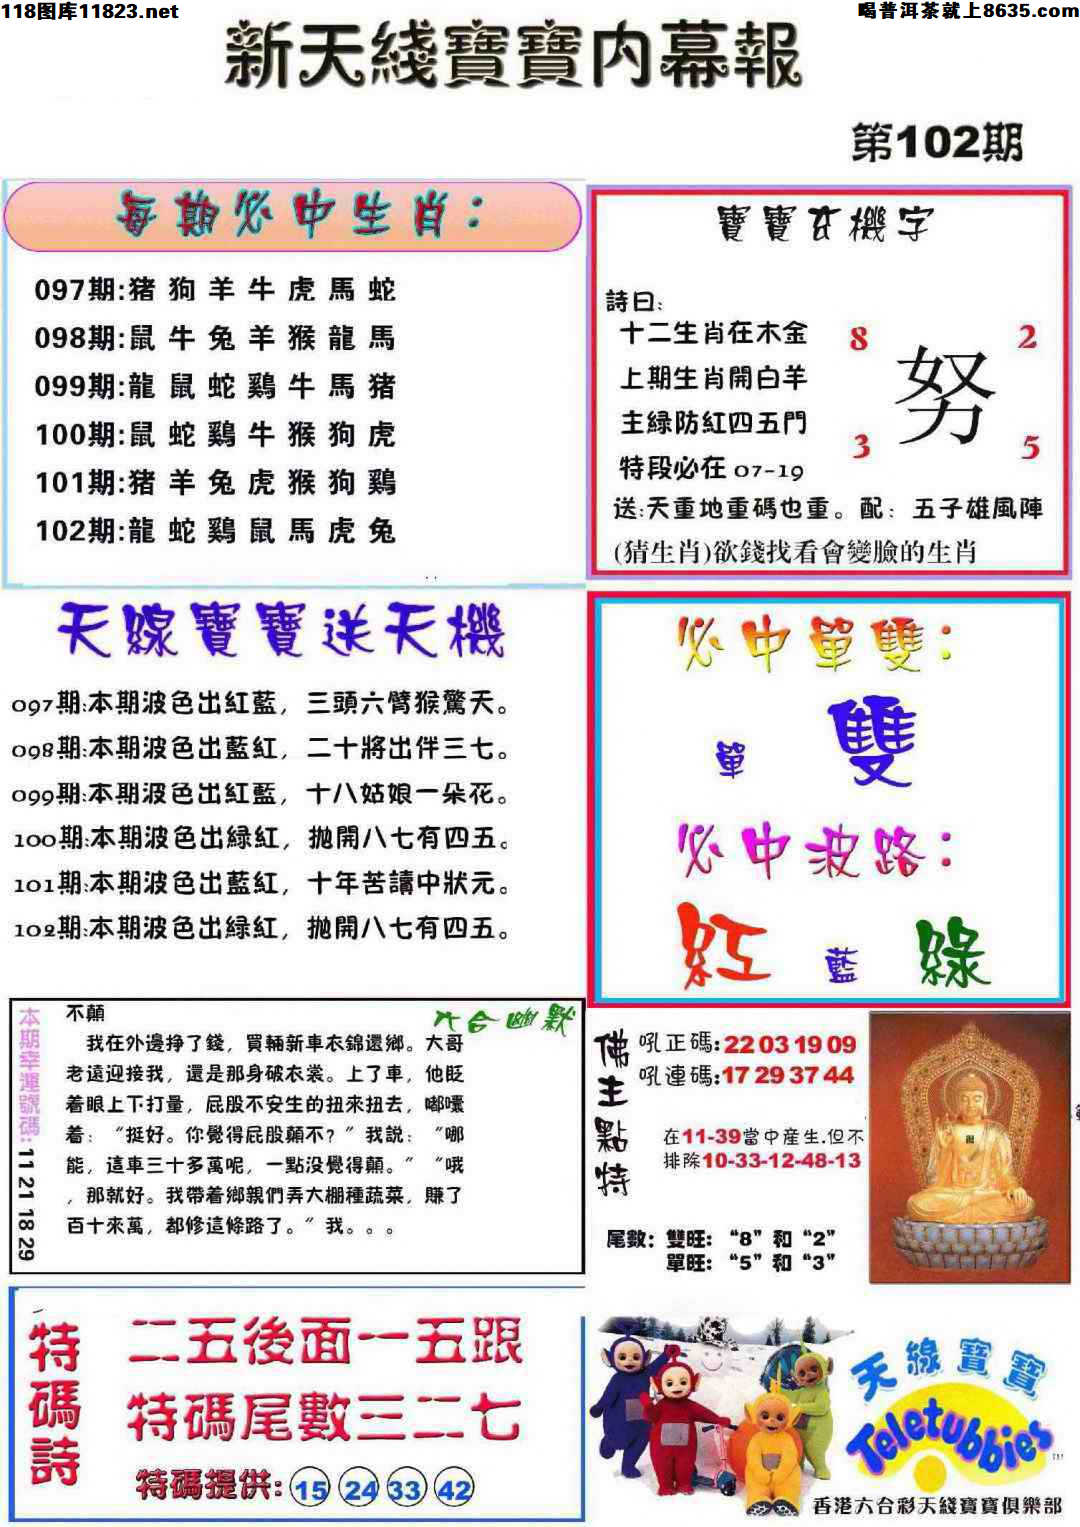 118图库11823.net
喝普洱茶就上8635.com
新天綫寶寶内幕報
第102期
每期必中生肖：
097期:猪 狗 羊 牛 虎 馬 蛇
098期:鼠 牛 兔 羊 猴 龍 馬
099期:龍 鼠 蛇 鷄 牛 馬 猪
100期:鼠 蛇 鷄 牛 猴 狗 虎
101期:猪 羊 兔 虎 猴 狗 鷄
102期:龍 蛇 鷄 鼠 馬 虎 兔
寶寶玄機字
詩曰:
十二生肖在木金
上期生肖開白羊
主緑防紅四五門
特段必在 07-19
8 2
努
3 5
送:天重地重碼也重。配：五子雄風陣
(猜生肖)欲錢找看會變臉的生肖
天線寶寶送天機
097期:本期波色出紅藍，三頭六臂猴驚天。
098期:本期波色出藍紅，二十將出伴三七。
099期:本期波色出紅藍，十八姑娘一朵花。
100期:本期波色出緑紅，拋開八七有四五。
101期:本期波色出藍紅，十年苦讀中狀元。
102期:本期波色出緑紅，拋開八七有四五。
必中單雙：
單 雙
必中波路：
紅 藍 綠
本期幸運號碼: 11 21 18 29
六合幽默
不顛
我在外邊掙了錢，買輛新車衣錦還鄉。大哥
老遠迎接我，還是那身破衣裳。上了車，他眨
着眼上下打量，屁股不安生的扭來扭去，嘟囔
着：“挺好。你覺得屁股顛不？”我説：“哪
能，這車三十多萬呢，一點没覺得顛。”“哦
，那就好。我帶着鄉親們弄大棚種蔬菜，賺了
百十來萬，都修這條路了。”我。。。
佛主點特
吼正碼:22 03 19 09
吼連碼:17 29 37 44
在11-39當中産生.但不
排除10-33-12-48-13
尾數：雙旺：“8”和“2”
單旺：“5”和“3”
特碼詩
二五後面一五跟
特碼尾數三二七
特碼提供: 15 24 33 42
天線寶寶
Teletubbies
TM
香港六合彩天綫寶寶俱樂部